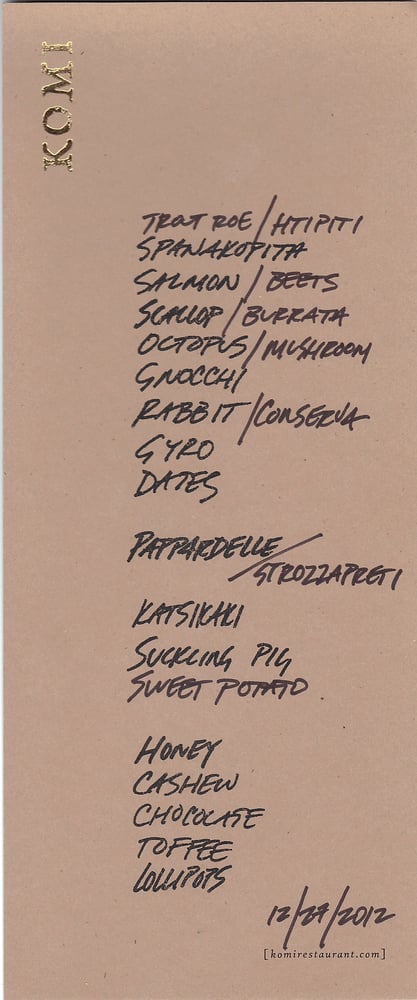 KOMI
TROUT ROE / HTIPITI
SPANAKOPITA
SALMON / BEETS
SCALLOP / BURRATA
OCTOPUS / MUSHROOM
GNOCCHI
RABBIT / CONSERVA
GYRO
DATES
PAPPARDELLE /
STROZZAPRETI
KATSIKAKI
SUCKLING PIG
SWEET POTATO
HONEY
CASHEW
CHOCOLATE
TOFFEE
LOLLIPOPS
12/27/2012
[komirestaurant.com]